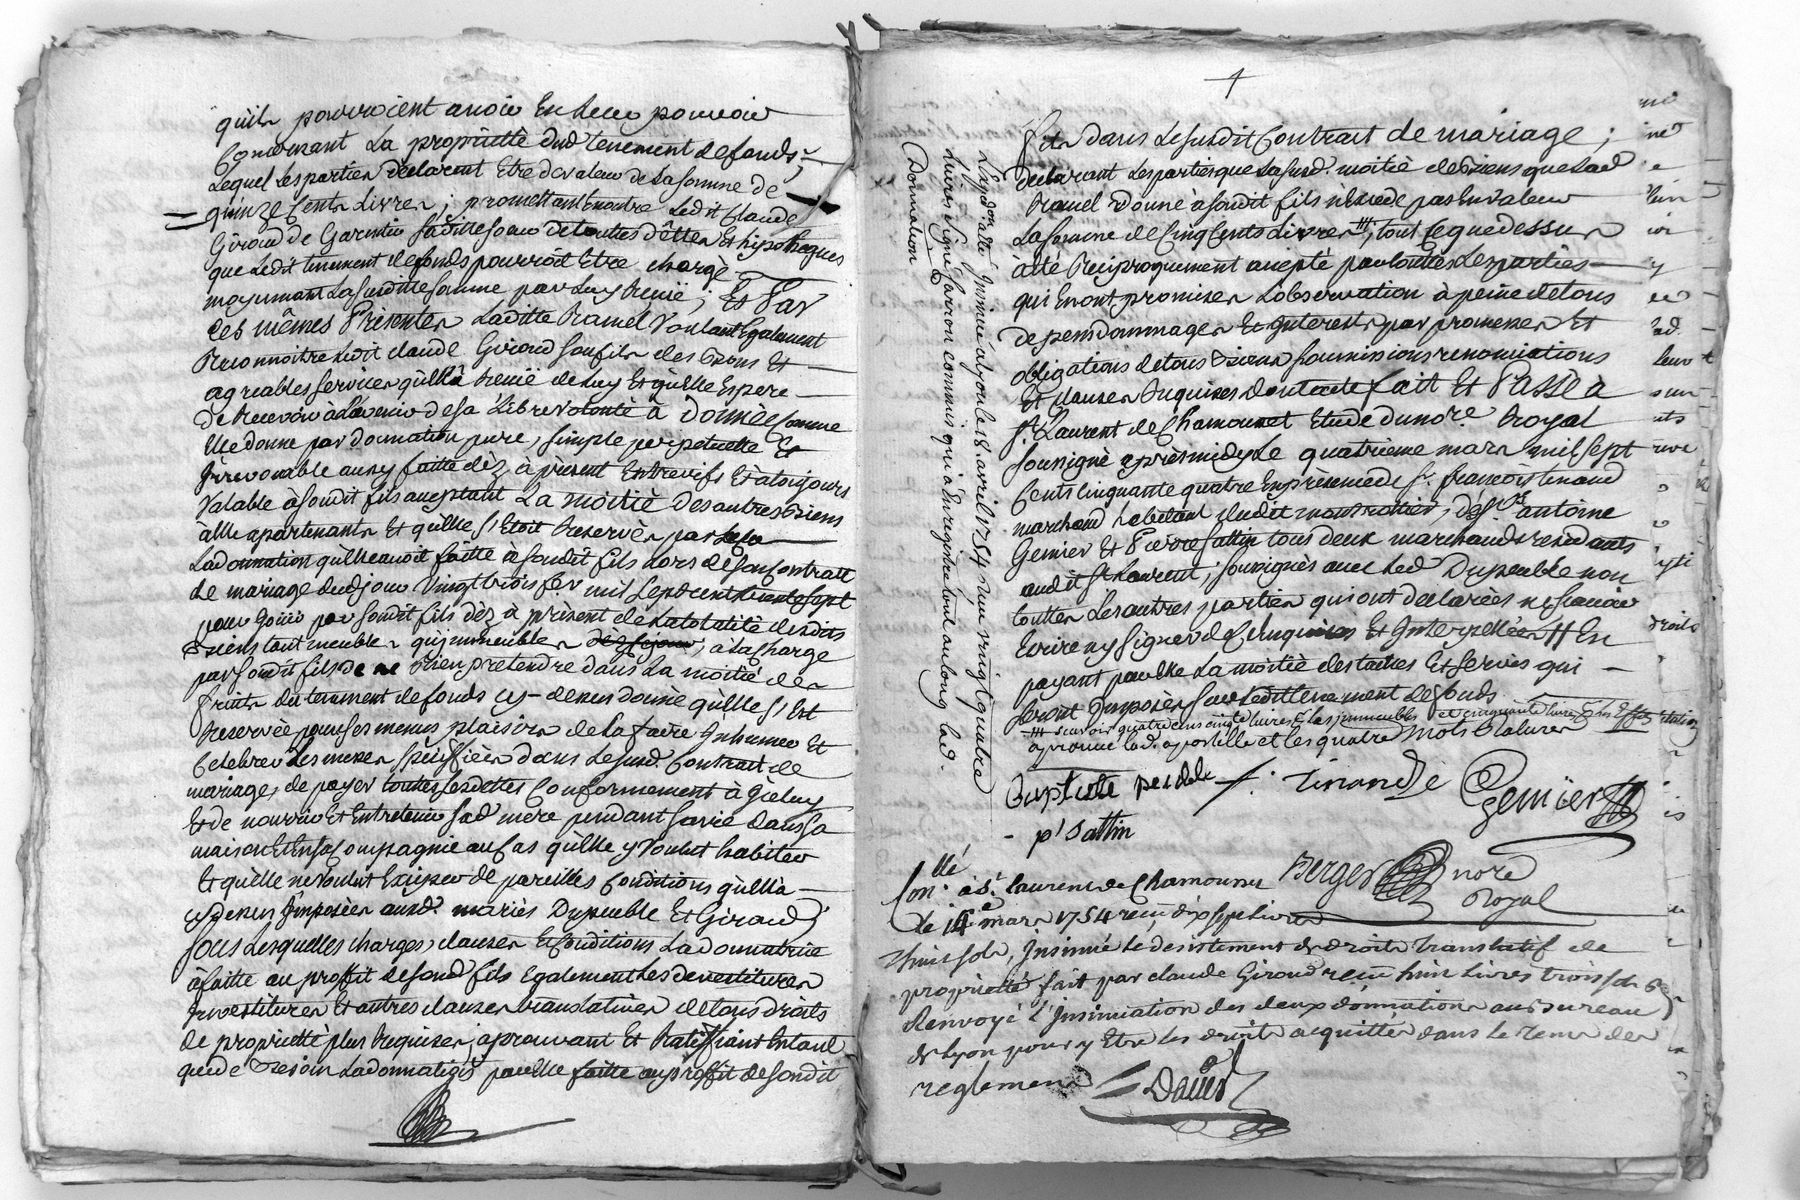 qu'ils pourroient avoir En leur pouvoir
Concernant La proprietté dud. tenement de fonds,
Lequel Les parties declarent Etre de valeur de La somme de
quinze Cents Livres ; promettant Encontre Ledit Claude
Giroud de Garentir Saditte soeur de touttes dêttes Et hipotheques
que Ledit tenement de fonds pourroit Etre chargé
moyennant La susditte somme par Luy Recüe ; Et Par
Ces mêmes Présentes Laditte Ramel Voulant Egalement
Reconnoitre Ledit claude Giroud son fils des Bons Et
agreables services qu'Elle à Recüe de Luy Et qu'Elle Espere
De Recevoir à L'avenir de sa Libre volonté à donné Comme
Elle donne par donnation pure, simple perpetuelle Et
Irrevocable a cause faitte déz à présent Entrevifs Et à toujours
Valable à sondit fils acceptant La moitié des autres Biens
à Elle apartenants Et qu'Elle S'Etoit Reservés par
La donnation qu'Elle avoit faitte a sondit fils Lors de son Contratt
de mariage dud jour Vingt trois fev. mil Sept cent trente sept
pour Jouir par sondit fils déz à présent de La totalité desdits
Biens tant meubles qu'immeubles ; à La charge
par sondit fils de ne Rien pretendre dans La moitié des
fruits du tenement de fonds cy-dessus Donné qu'Elle S'Est
Reservée pour ses menus plaisirs de La faire Inhumer Et
Celebrer Les messes spéciffiées dans Le susd. Contrait de
mariage, de payer touttes ses dettes Conformement à Iceluy
Et de nourrir Et Entretenir Sad. mere pendant sa vie Dans sa
maison Et En sa Compagnie au Cas qu'Elle y Voulut habiter
Et qu'Elle ne Voulut Exiger de pareilles Conditions qu'Ell'à
cy dessus Imposées auxd. mariés Dupeuble Et Giroud ;
sous Lesquelles charges, clauses Et Conditions La donnatrice
à faitte au proffit de sond. fils Egalement Les devestitures
Investitures Et autres clauses translatives de tous droits
de proprietté plus Requises, aprouvant Et Ratiffiant En tant
que de Besoin La donnation par Elle faitte au proffit de sondit
fils dans Le susdit Contrait de mariage ;
declarant Les parties que La susd. moitié de Biens que Lad
Ramel Donne à sondit fils n'Excede pas En valeur
La somme de Cinq Cents Livres ///, tout Ce que dessus
à été Reciproquement accepté par touttes Les parties
qui En ont promises L'observation à peine de tous
depens dommages Et Interests par promesses Et
obligations de tous Biens soumissions renonciations
Et clauses Requises dont acte fait Et Passé à
St. Laurent de Chamousset Etude du nore. Royal
soussigné après midy Le quatrieme mars mil sept
Cents Cinquante quatre En présence de Sr. françois tinand
marchand habitant dudit
Gemier Et Pierre sattin tous deux marchands residants
audit St Laurent ; soussignés avec Led. Dupeuble non
touttes Les autres parties qui ont declarées ne scavoir
Ecrire ny signer de Ce Enquises Et Interpellées // En
payant par Elle La moitié des tailles Et servis qui
seront Imposés sur Ledit tenement de fonds
/// scavoir quatre cens cinqte livres Les immeubles et cinquante livres Les
aprouvé lad. apostille et les quatre mots Raturés
Baptiste peuble f. tinand Gemier
p. Sattin
Berger nore
Royal
Con.llé à St. laurent de Chamousset
Le 14e mars 1754 reçu dix sept livres
huit sols, Insinué le desistement de droits translatif de
proprietté fait par claude Giroud reçu huit livres trois sols
Renvoyé L'Insinuation des deux donnations au Bureau
de Lyon pour y Etre les droits acquittés dans le tems des
reglemens
Donation
avril 1754 reçu vingt quatre
livres signé commis qui a Enregistré tout au long lad.